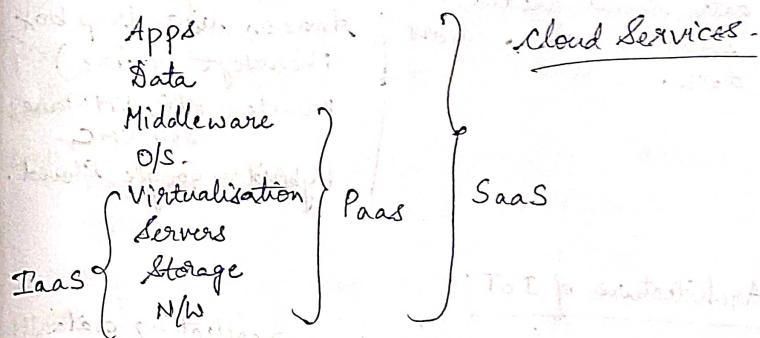 Cloud Services.
Apps
Data
Middleware
O/S.
Virtualisation
Servers
Storage
N/W
IaaS
Paas
SaaS